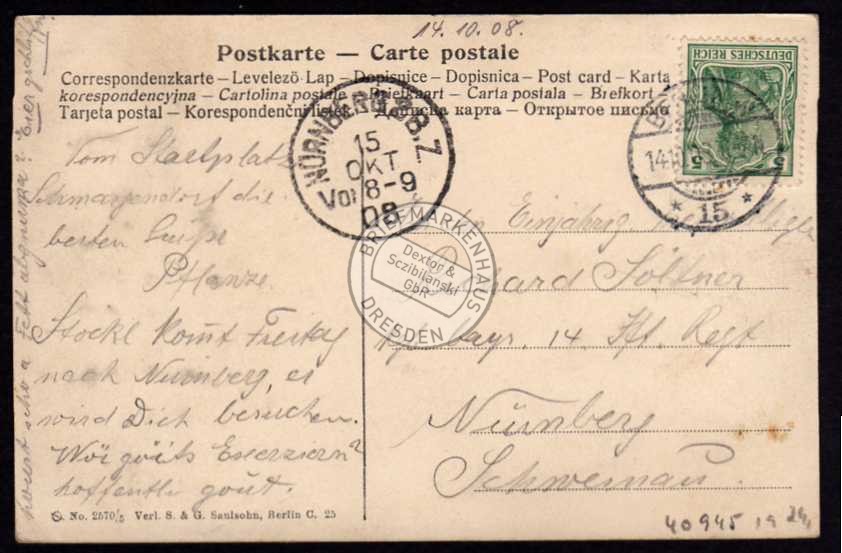 14.10.08.
Postkarte — Carte postale
Correspondenzkarte – Levelező Lap – Dopisnice – Dopisnica – Post card – Karta
korespondencyjna – Cartolina postale – Briefkaart – Carta postala – Brefkort –
Tarjeta postal – Korespondenční lístek – карта – Открытое письмо
DEUTSCHES REICH
5 5
NÜRNBERG 2 B.Z.
15
OKT
Vor 8-9
08
* 15 *
BRIEFMARKENHAUS
Dextor &
Sczibilanski
GbR
DRESDEN
Vom Startplatz
Schmargendorf die
besten Grüße
Pflanze.
Stockl komt Freitag
nach Nürnberg, er
wird Dich besuchen.
Wöi göits Exerziern?
hoffentli gout.
Einjährig
Söltner
bayr. 14. Ift. Regt
Nürnberg
Schweinau
S. & G. No. 2570/5 Verl. S. & G. Saulsohn, Berlin C. 25
40945